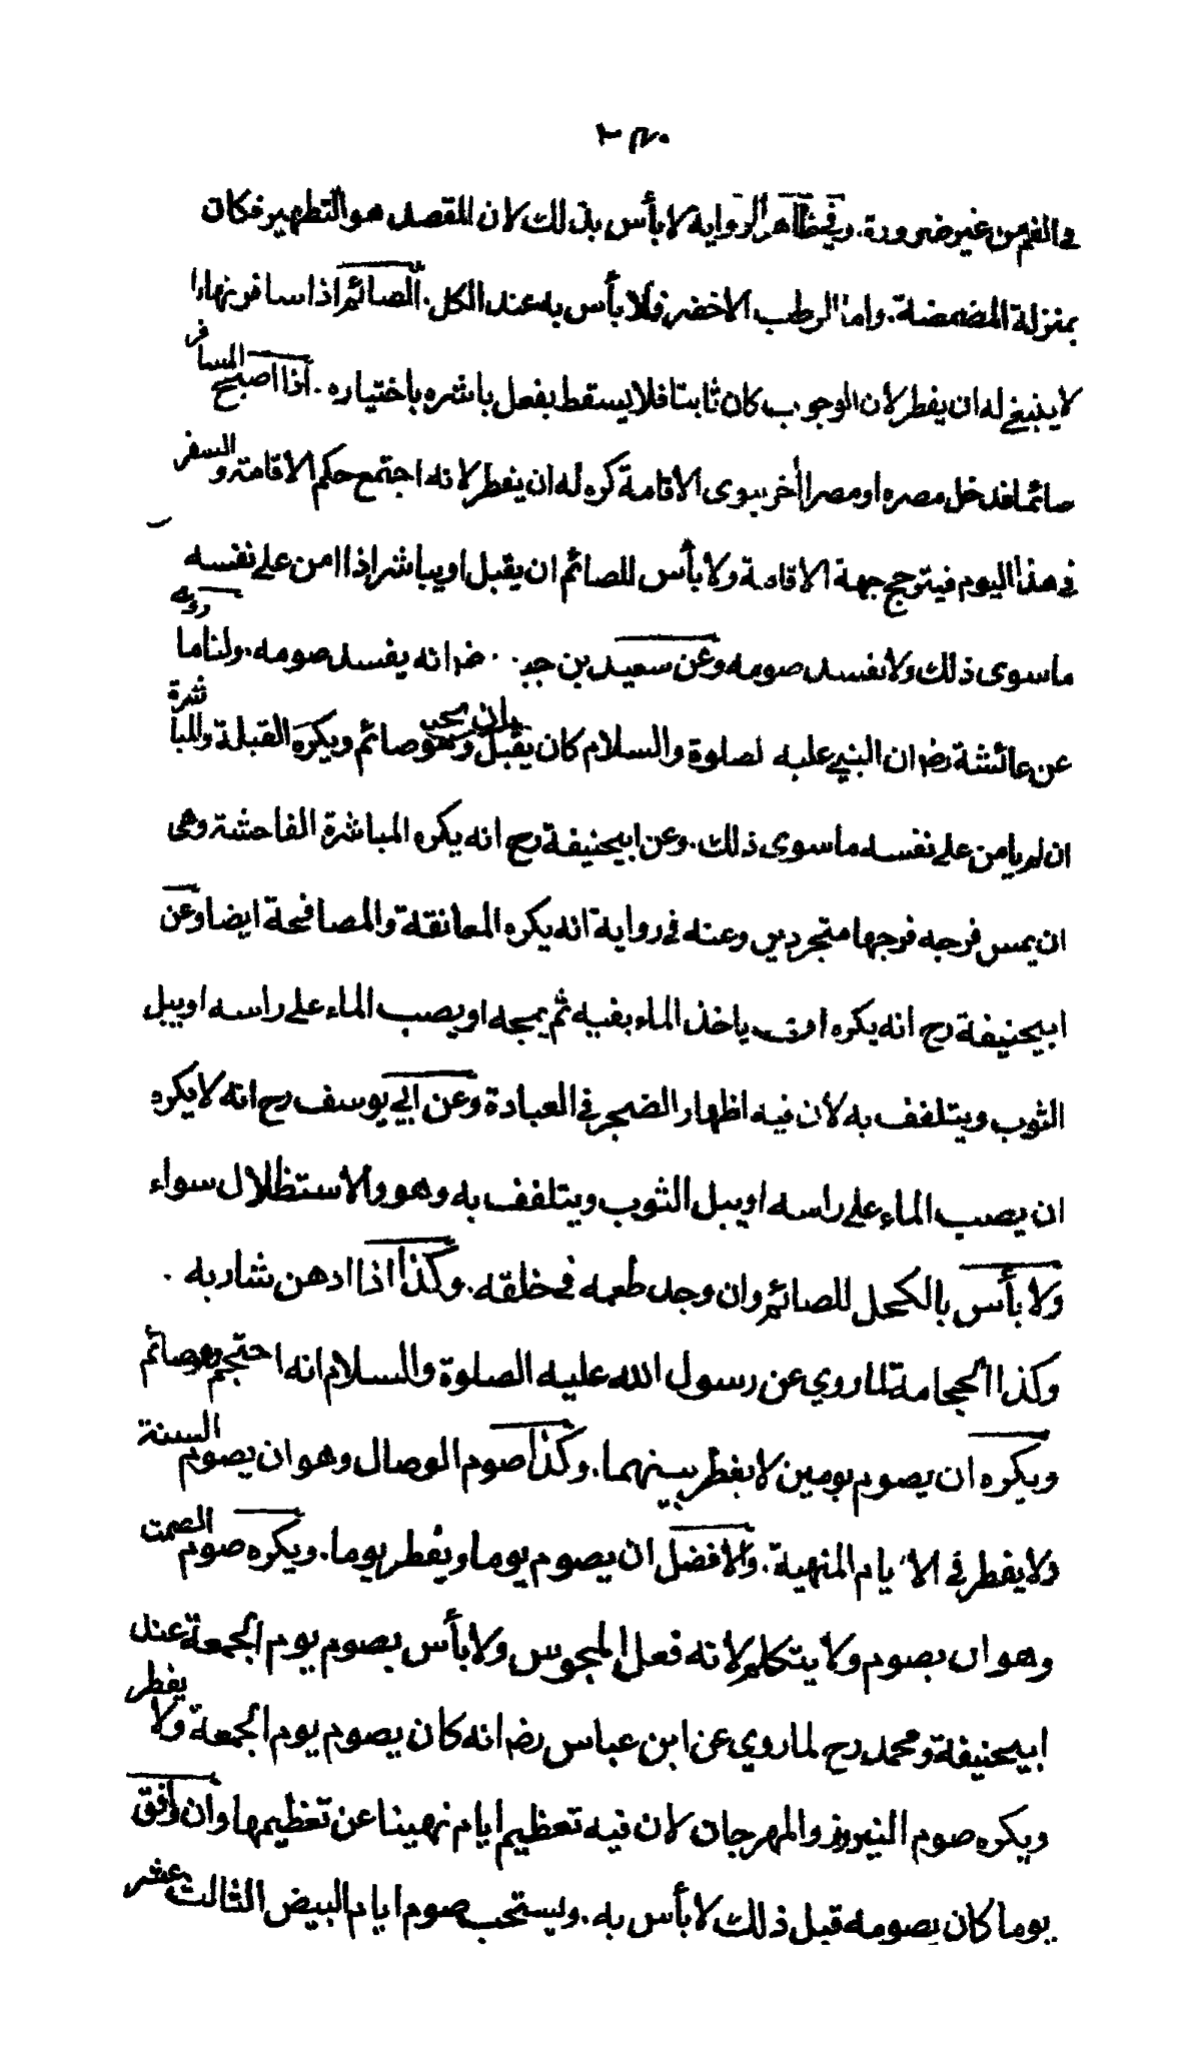 في الفم من غير ضرورة. وفي ظاهر الرواية لا بأس بذلك لان المقصد هو التطهير فكان
بمنزلة المضمضة. واما الرطب الاخضر فلا بأس به عند الكل. الصائم اذا سافر نهارا
لا ينبغي له ان يفطر لأن الوجوب كان ثابتا فلا يسقط بفعل باشره باختياره. اذا اصبح المسافر
صائما فدخل مصره او مصرا أخر ينوى الاقامة كره له ان يفطر لانه اجتمع حكم الاقامة والسفر
في هذا اليوم فيترجح جهة الاقامة ولا بأس للصائم ان يقبل او يباشر اذا امن على نفسه
ما سوى ذلك ولا يفسد صومه وعن سعيد بن جبير رضـ انه يفسد صومه. ولنا ما روي
عن عائشة رضـ ان النبي عليه الصلوة والسلام كان يقبل وهو صائم ويكره القبلة والمباشرة
ان لم يامن على نفسه ما سوى ذلك. وعن ابيحنيفة رح انه يكره المباشرة الفاحشة وهى
ان يمس فرجه فرجها متجردين وعنه في رواية انه يكره المعانقة والمصافحة ايضا وعن
ابيحنيفة رح انه يكره ان ياخذ الماء بفيه ثم يمجه او يصب الماء على راسه او يبل
الثوب ويتلفف به لان فيه اظهار الضجر في العبادة وعن ابي يوسف رح انه لا يكره
ان يصب الماء على راسه او يبل الثوب ويتلفف به وهو والاستظلال سواء
ولا بأس بالكحل للصائم وان وجد طعمه في خلقه. وكذا اذا ادهن شاربه .
وكذا الحجامة لما روي عن رسول الله عليه الصلوة والسلام انه احتجم وهو صائم
ويكره ان يصوم يومين لا يفطر بينهما. وكذا صوم الوصال وهو ان يصوم السنة
ولا يفطر في الايام المنهية. والافضل ان يصوم يوما ويفطر يوما. ويكره صوم الصمت
وهو ان يصوم ولا يتكلم لانه فعل المجوس ولا بأس بصوم يوم الجمعة عند
ابيحنيفة ومحمد رح لما روي عن ابن عباس رضـ انه كان يصوم يوم الجمعة ولا يفطر
ويكره صوم النيروز والمهرجان لان فيه تعظيم ايام نهينا عن تعظيمها وان وافق
يوما كان يصومه قبل ذلك لا بأس به. ويستحب صوم ايام البيض الثالث عشر